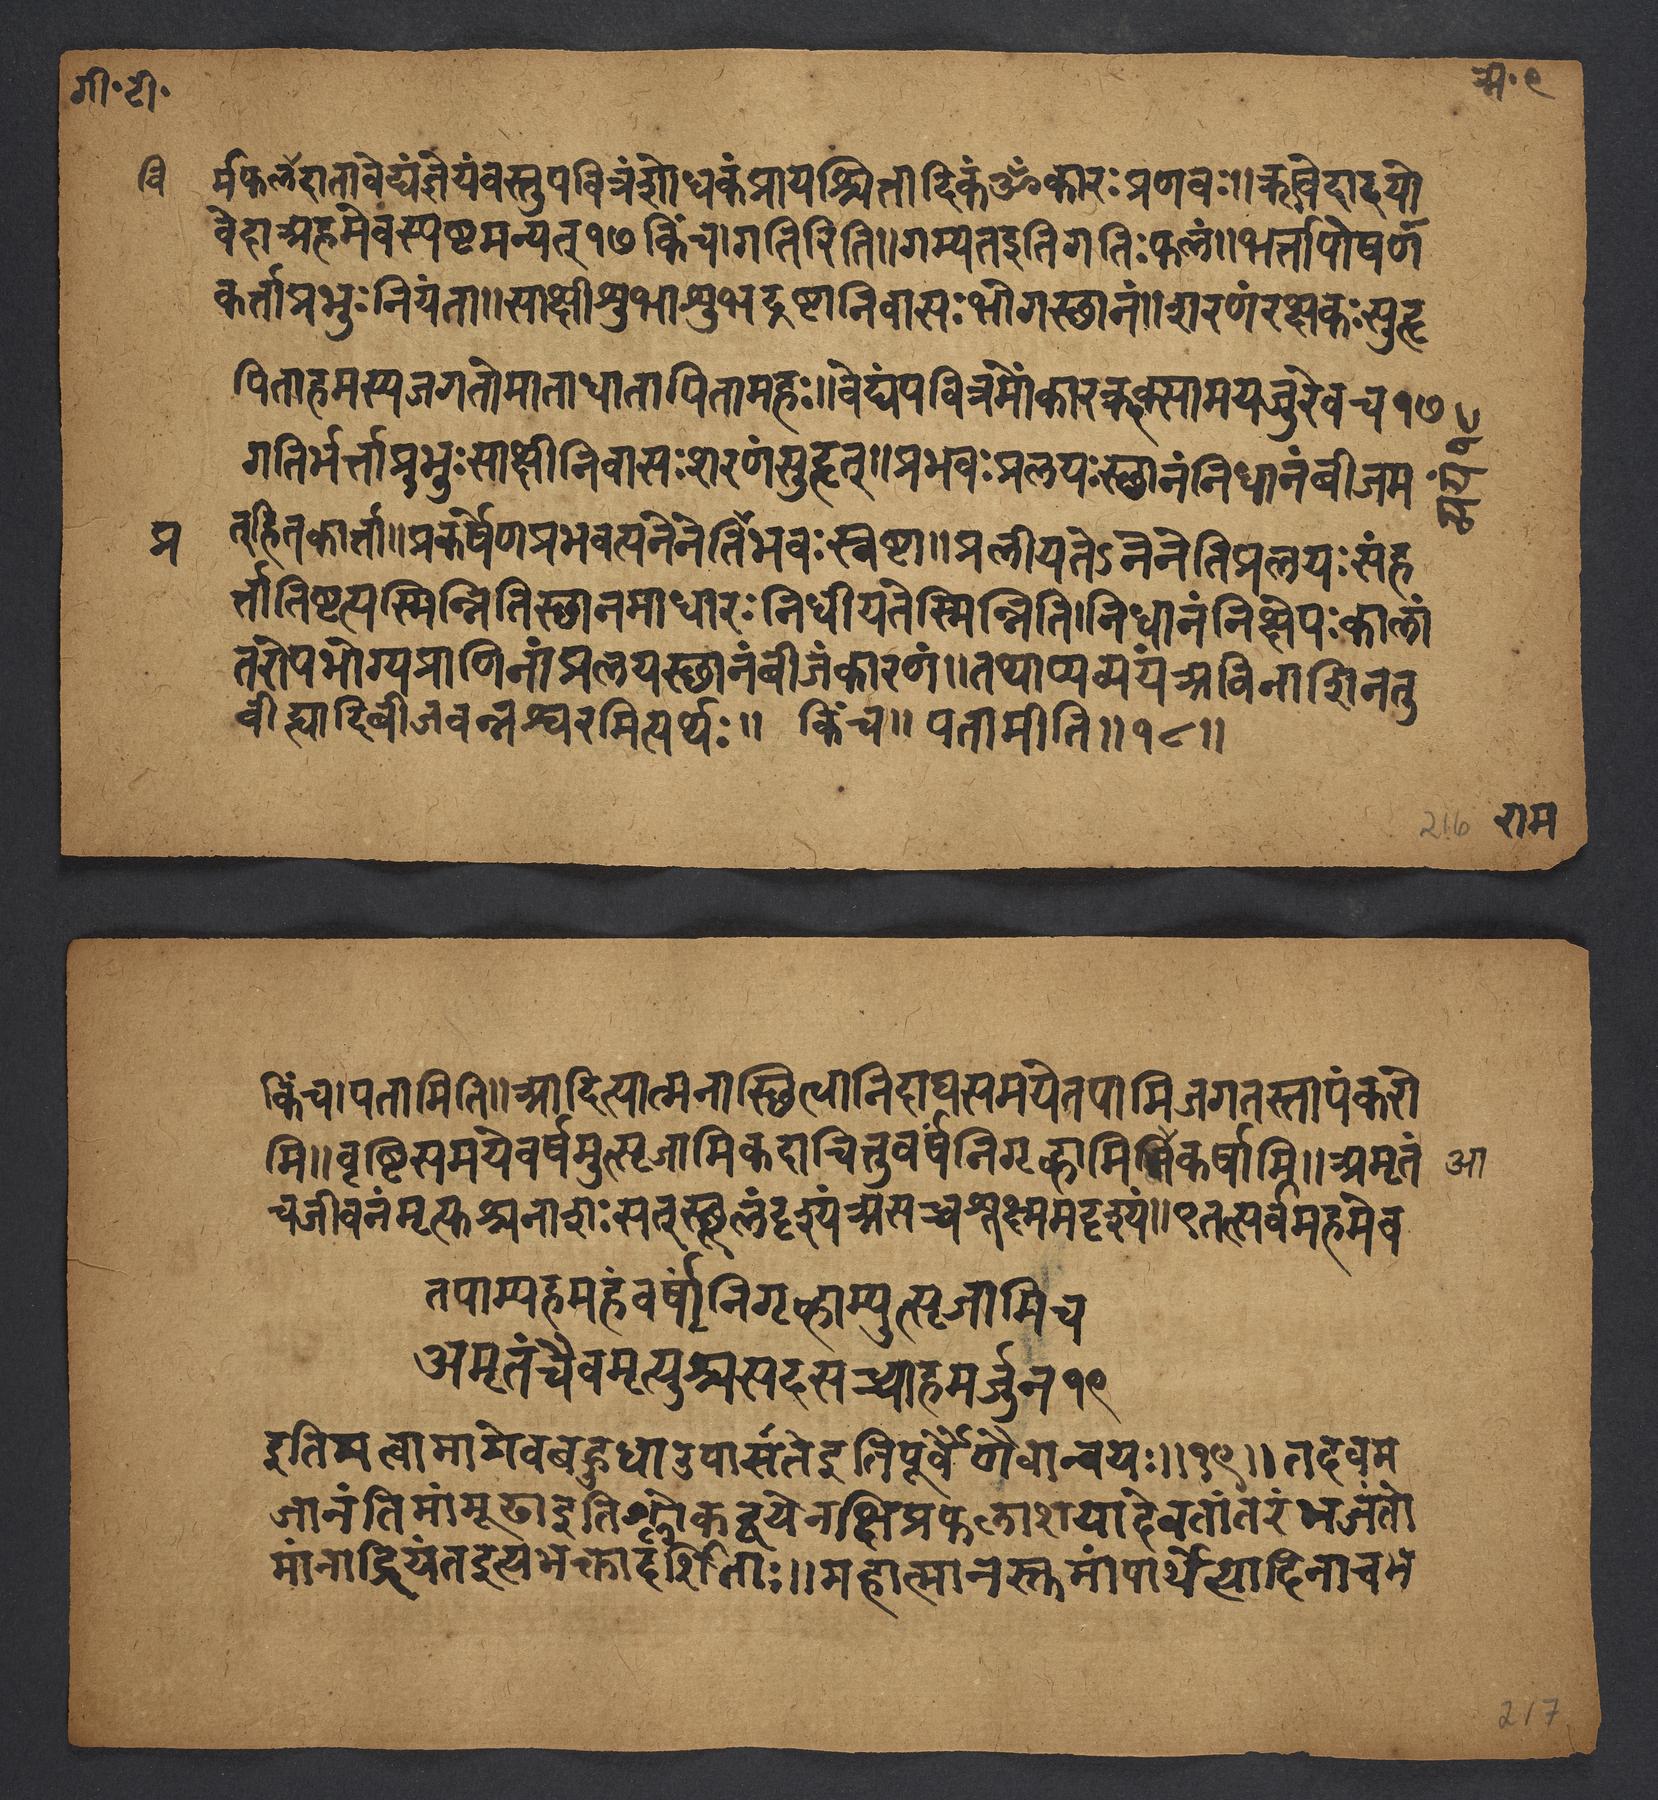 गी॰टी॰
अ॰९
वि
र्मफलंदातावेद्यंज्ञेयंवस्तुपवित्रंशोधकंप्रायश्चितादिकंॐकारःप्रणवः॥ऋग्वेदादयो
वेदाअहमेवस्पष्टमन्यत्१७किंच।गतिरिति॥गम्यतइतिगतिःफलं॥भर्त्तापोषण
कर्त्ताप्रभुःनियंता॥साक्षीशुभाशुभद्रष्टानिवासःभोगस्छानं॥शरणंरक्षकःसुहृ
पिताहमस्यजगतोमाताधातापितामहः॥वेद्यंपवित्रमोंकारऋक्सामयजुरेवच१७
गतिर्भर्त्ताप्रभुःसाक्षीनिवासःशरणंसुहृत्॥प्रभवःप्रलयःस्छानंनिधानंबीजम
प्र
त्हितकार्त्ता॥प्रकर्षेणप्रभवत्यनेनेतिंभवःस्त्रष्टा॥प्रलीयतेऽनेनेतिप्रलयःसंह
र्त्तातिष्टत्यस्मिन्नितिस्छानमाधारःनिधीयतेस्मिन्निति।निधानंनिक्षेपःकालां
तरोपभोग्यप्राणिनांप्रलयस्छानंबीजंकारणं॥तथाप्यव्ययंअविनाशिनतु
वीह्यादिबीजवन्नश्वरमित्यर्थः॥ किंच॥पतामीति॥१८॥
216
राम
किंच।पतामिति॥आदित्यात्मनास्छित्वानिदाघसमयेतपामिजगतस्तापंकरो
मि॥वृष्टिसमयेवर्षमुत्सृजामिकदाचित्तुवर्षंनिगृह्णामिकर्षामि॥अमृतं
आ
चजीवनंमृत्यश्चनाशःसत्स्छूलंदृश्यंअसच्चश्रूक्ष्ममदृश्यं॥एतत्सर्वमहमेव
तपाम्यहमहंवर्षांनिगृह्णाम्युत्सृजामिच
अमृतंचैवमृत्युश्चसदसच्चाहमर्जुन१९
इतिमत्वामामेवबहुधाउपासंतेइतिपूर्वेणैवान्वयः॥१९॥तदेवम
जानंतिमांमूढाइतिश्लोकद्वयेनक्षिप्रफलाशयादेवतांतरंभजंतो
मांनाद्रियंतइत्यभक्तादर्शिताः॥महात्मानस्तुमांपार्थेत्यादिनाचभ
217